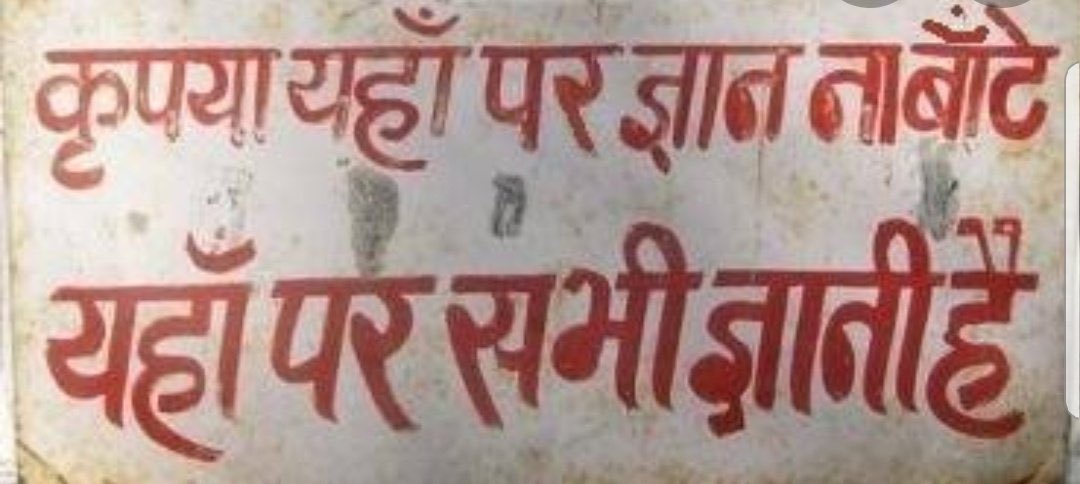 कृपया यहाँ पर ज्ञान ना बाँटे
यहाँ पर सभी ज्ञानी है